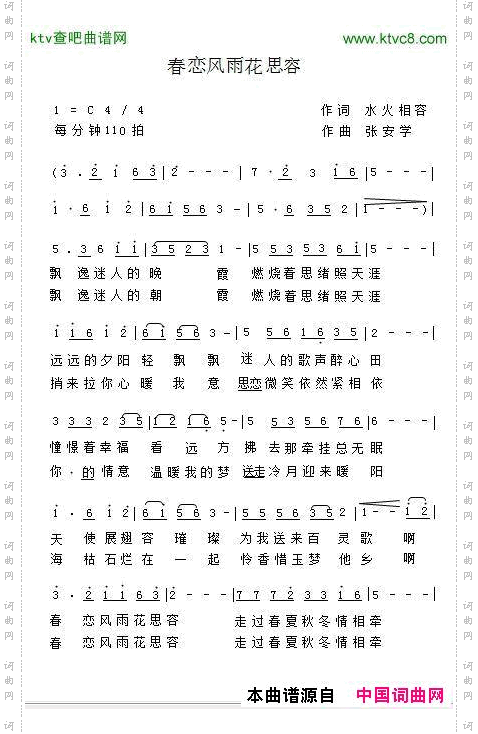 ktv查吧曲谱网 www.ktvc8.com
春恋风雨花思容
1 = C 4 / 4 作词 水火相容
每分钟110拍 作曲 张安学
(3 · 2 1 6 3 | 2 - - - | 7 · 2 3 1 6 | 5 - - - |
1 · 6 1 2 | 6 1 5 6 | 5 · 6 3 5 2 | 1 - - - ) |
5 . 3 6 1 1 | 3 5 2 3 1 - | 5 5 3 5 3 6 1 | 5 - - - |
飘 逸迷人的晚 霞 燃烧着思绪照天涯
飘 逸迷人的朝 霞 燃烧着思绪照天涯
1 1 6 1 2 | 6 1 5 6 | 5 5 6 1 6 3 5 | 2 - - - |
远远的夕阳轻飘飘 迷人的歌声醉心田
捎来拉你心暖我意 思恋微笑依然紧相依
3 3 3 2 3 5 | 1 2 1 6 5 - | 5 3 5 6 7 6 | 6 - - - |
憧憬着幸福看远方 拂去那牵挂总无眠
你·的情意温暖我的梦 送走冷月迎来暖阳
1 · 6 1 2 | 6 1 5 6 - | 5 5 5 6 3 5 2 | 1 - - 1 2 |
天 使展翅容璀璨 为我送来百灵歌 啊
海 枯石烂在一起 怜香惜玉梦他乡 啊
3 · 2 1 6 3 | 2 - - - | 7 7 7 2 3 1 6 | 5 - - - |
春 恋风雨花思容 走过春夏秋冬情相牵
春 恋风雨花思容 走过春夏秋冬情相牵
本曲谱源自 中国词曲网